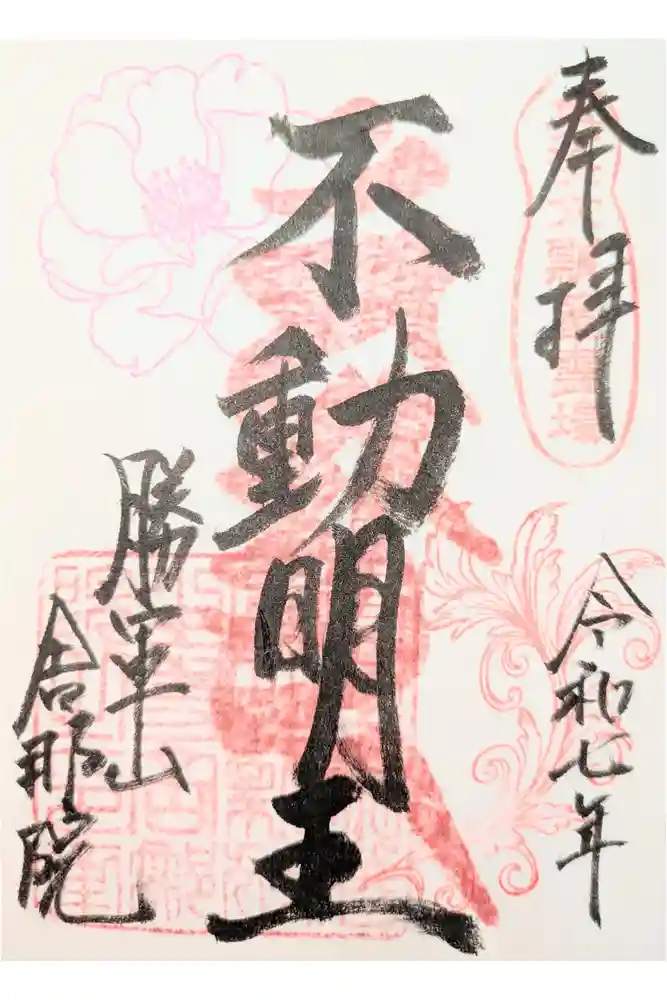 奉拝
令和七年
不動明王
勝軍山
舎那院